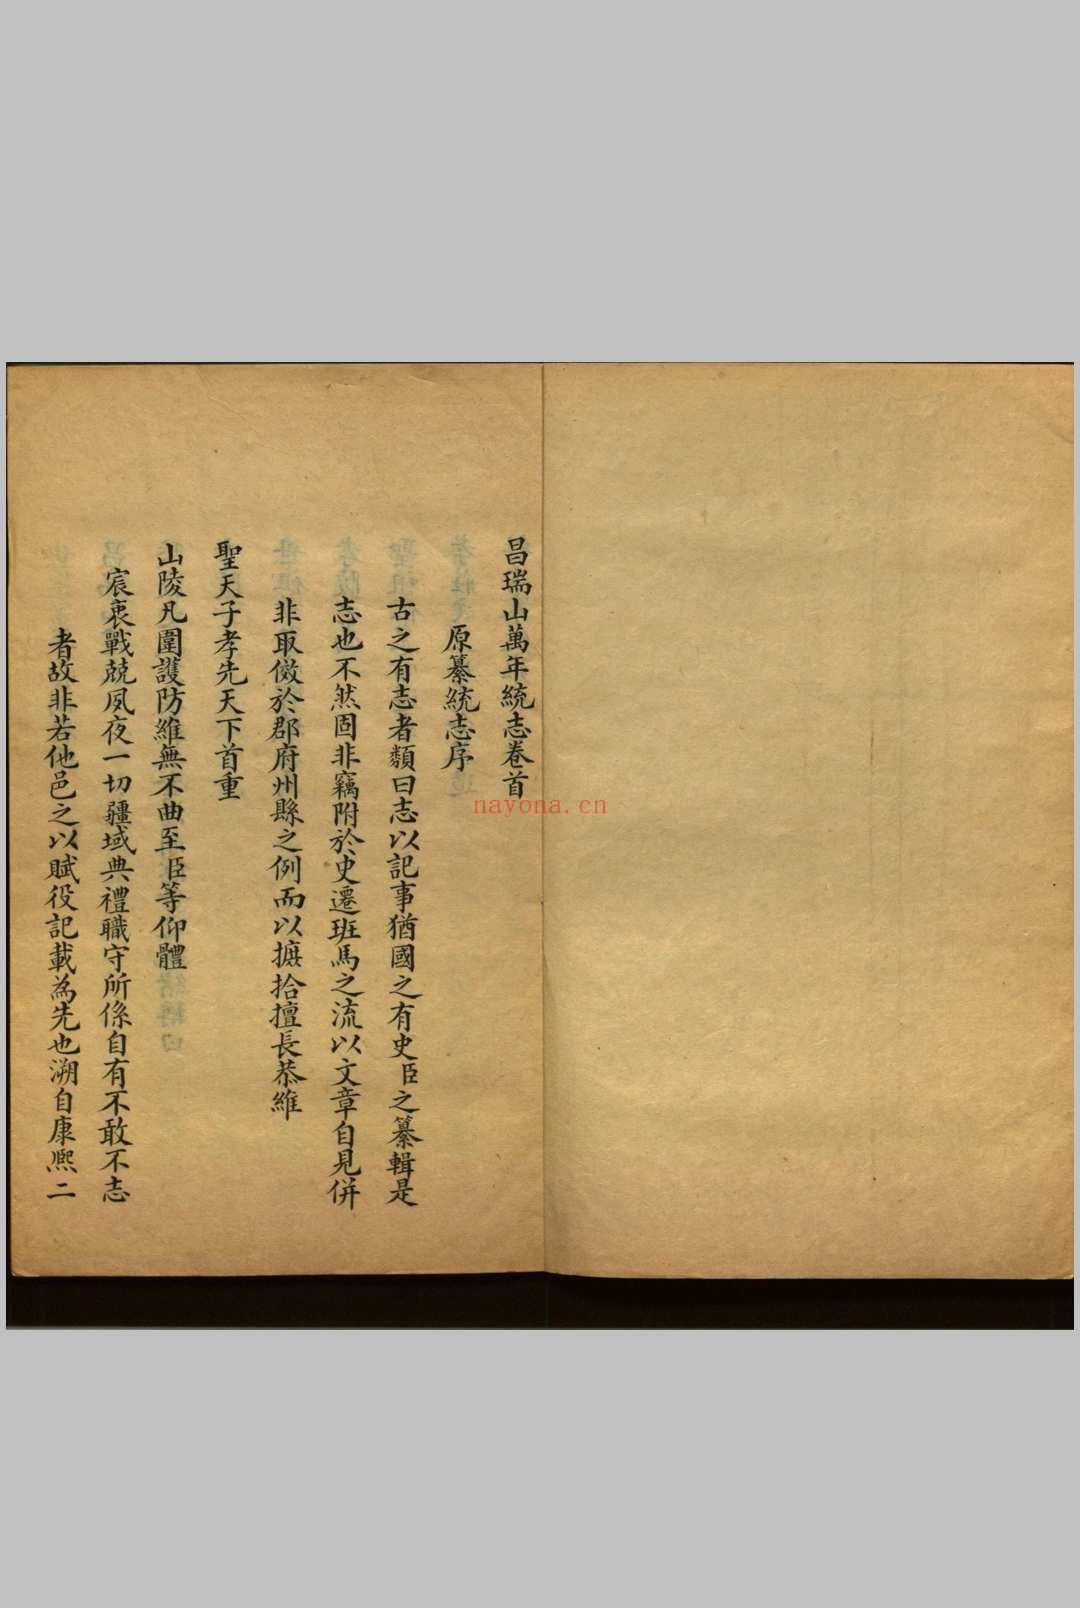 昌瑞山萬年統志卷首
原纂統志序
古之有志者類曰志以記事猶國之有史臣之纂輯是
志也不然固非竊附於史遷班馬之流以文章自見併
非取倣於郡府州縣之例而以摭拾擅長恭維
聖天子孝先天下首重
山陵凡圍護防維無不曲至臣等仰體
宸衷戰兢夙夜一切疆域典禮職守所係自有不敢不志
者故非若他邑之以賦役記載為先也溯自康熙二
nayona.cn